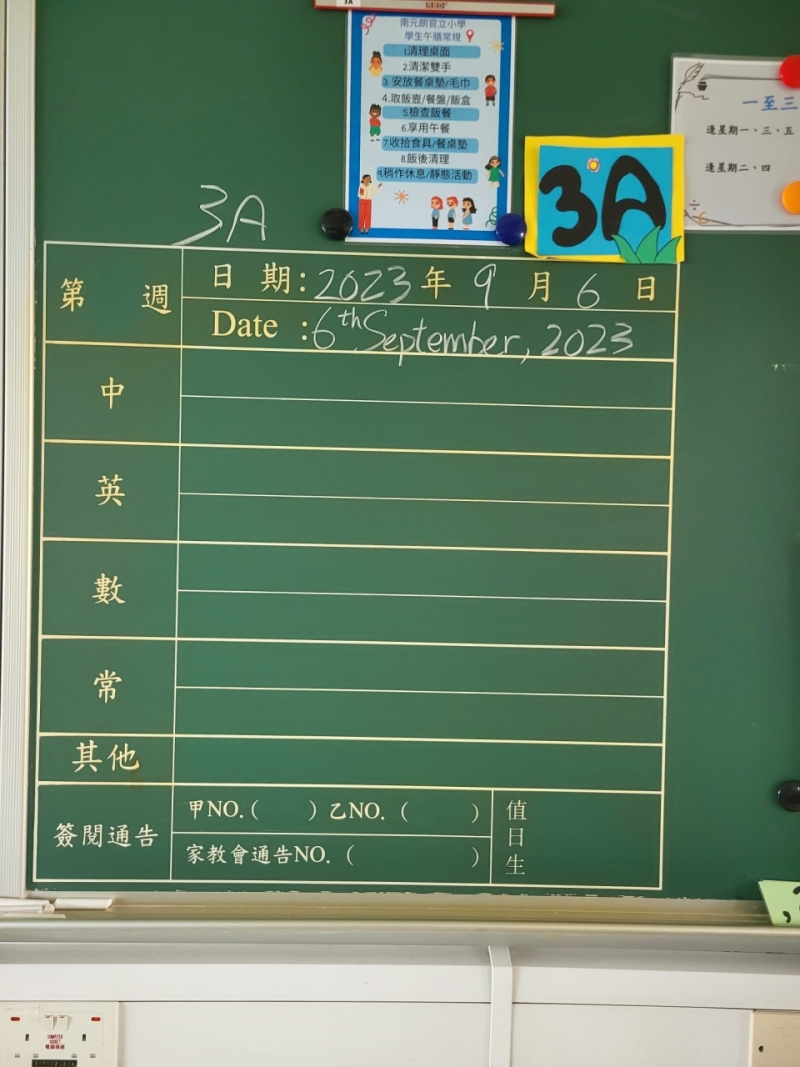 3A
南元朗官立小學
學生午膳常規
1清理桌面
2清潔雙手
3.安放餐桌墊/毛巾
4.取飯壺/餐盤/飯盒
5檢查飯餐
6.享用午餐
7.收拾食具/餐桌墊
8.飯後清理
9.稍作休息/靜態活動
一至三
逢星期一、三、五
逢星期二、四
3A
3A
第 週
日 期:2023年 9 月 6 日
Date :6th September, 2023
中
英
數
常
其他
簽閱通告
甲NO.( ) 乙NO. ( )
家教會通告NO. ( )
值日生
COMPUTER
SOCKET